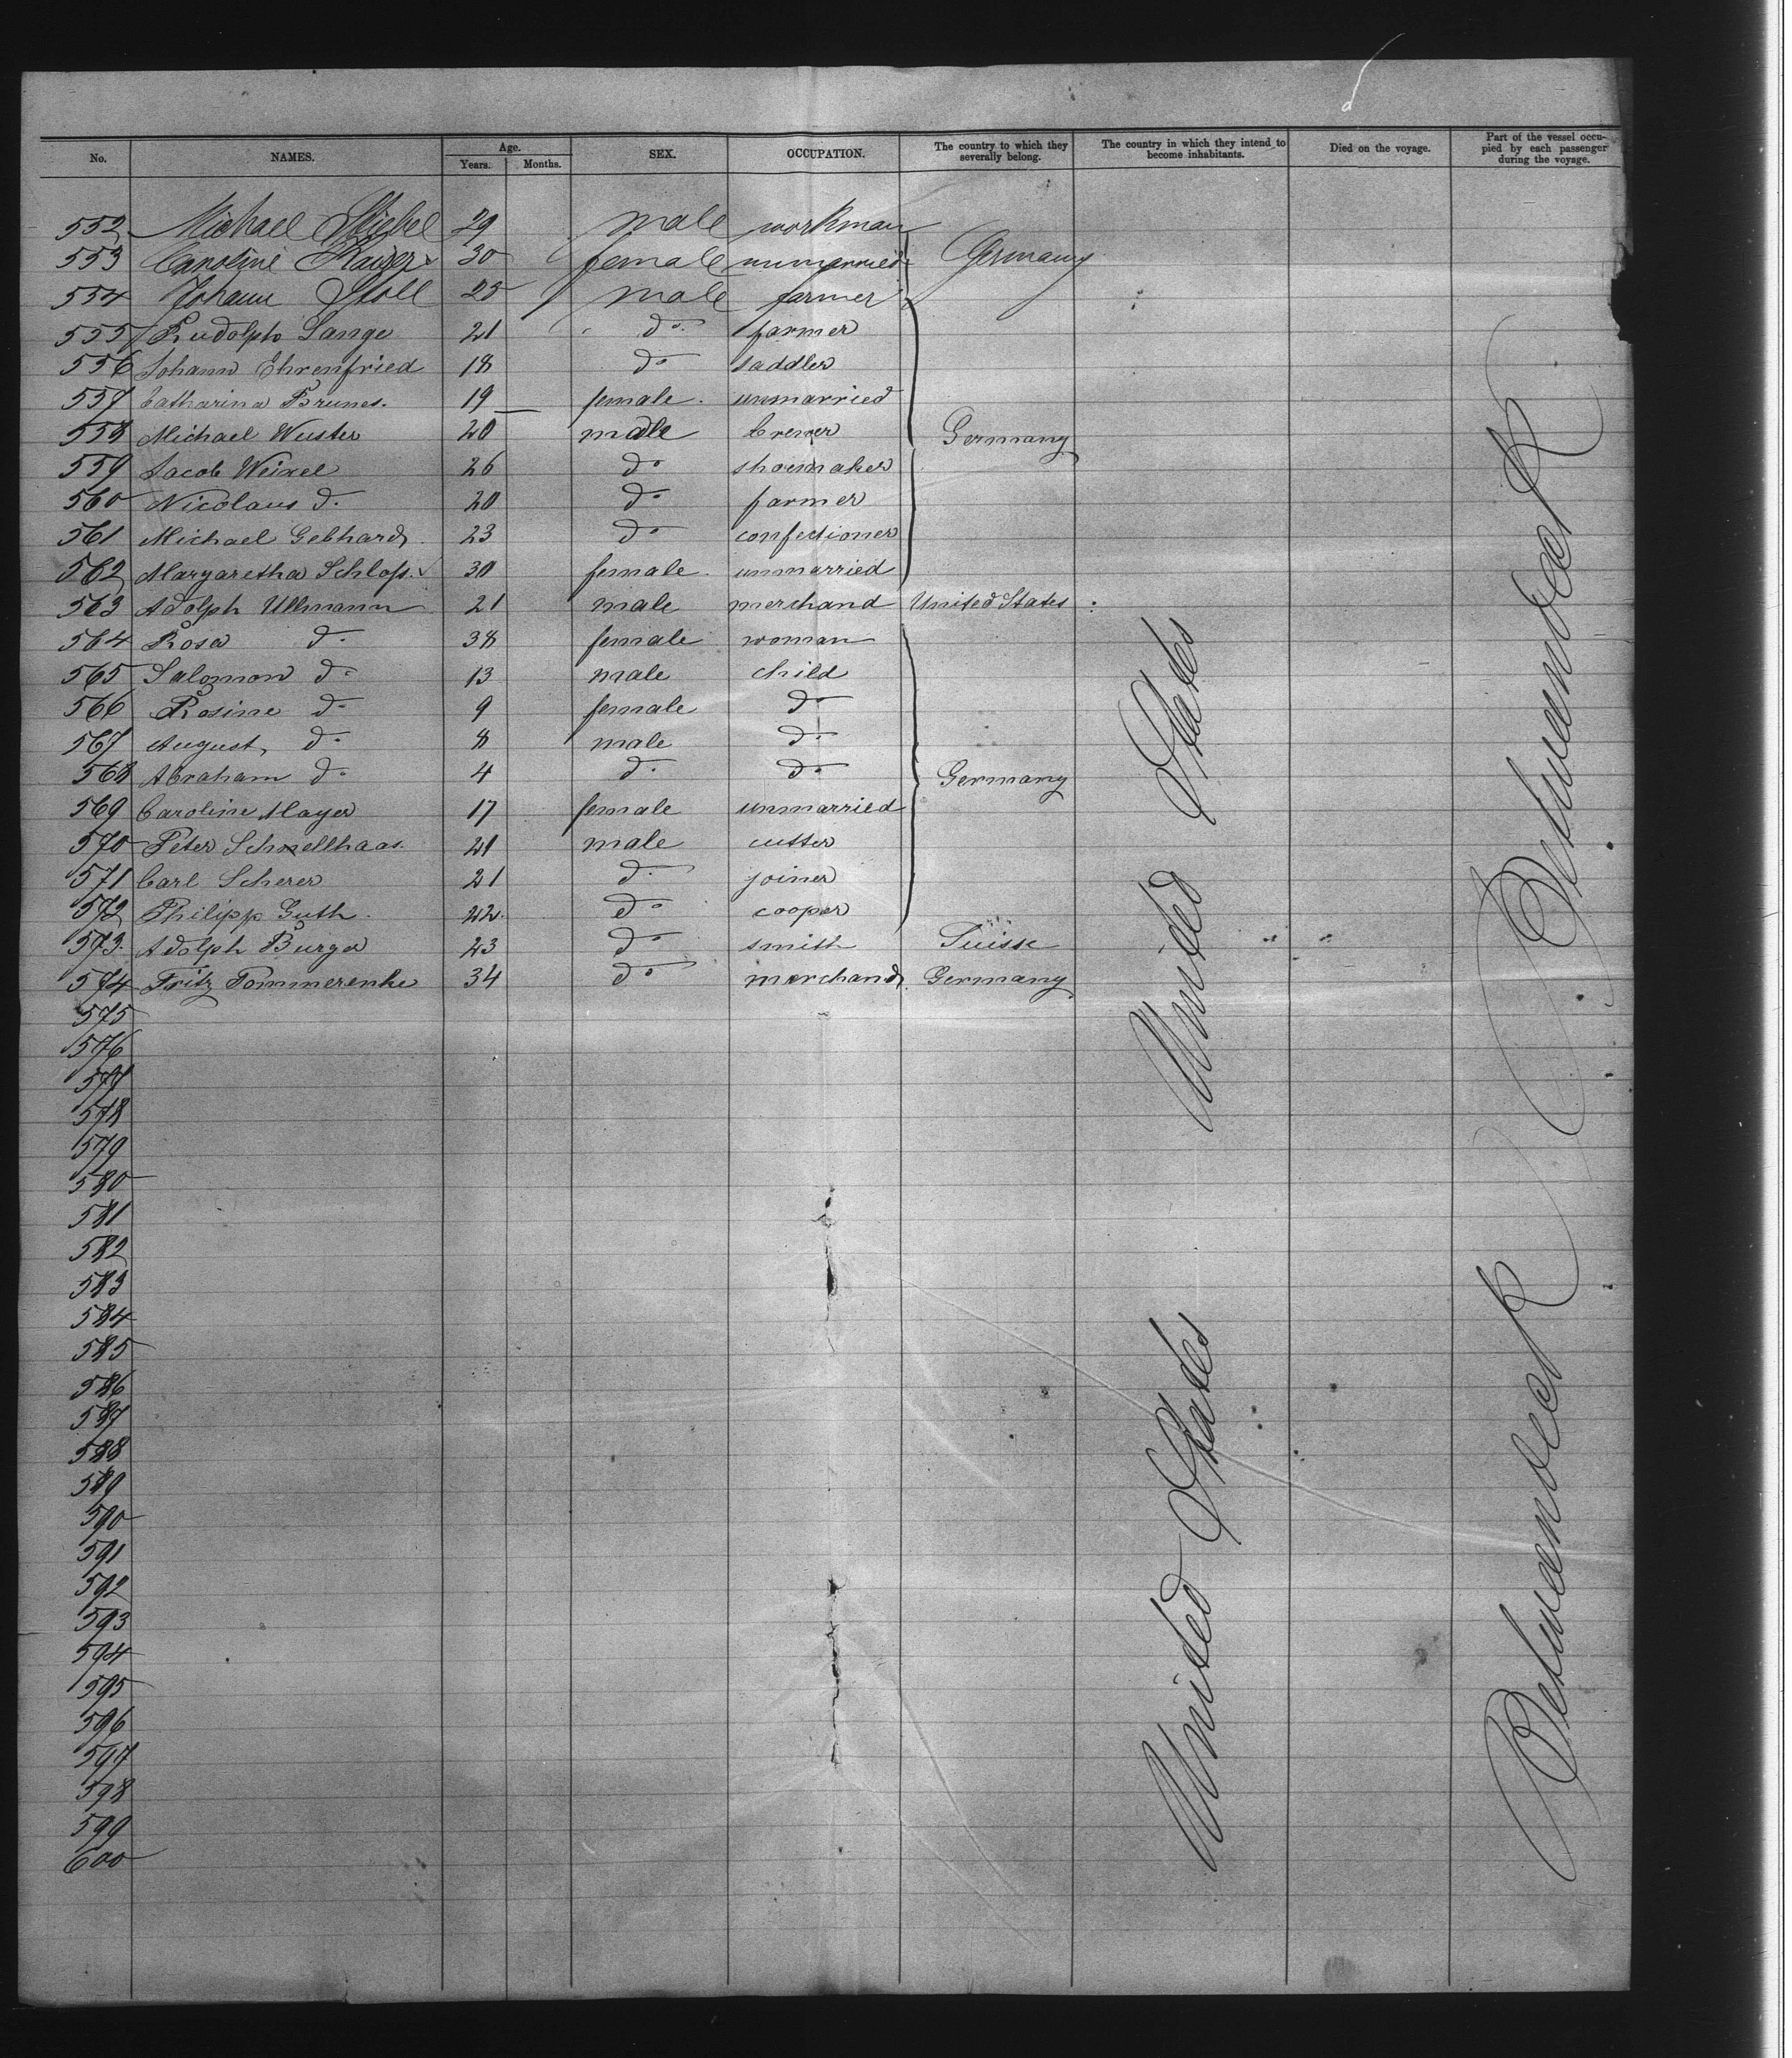 No. NAMES. Age. Years. Months. SEX. OCCUPATION. The country to which they severally belong. The country in which they intend to become inhabitants. Died on the voyage. Part of the vessel occupied by each passenger during the voyage.
552 Michael Stiebel 29 male workman
553 Caroline Kaiser 30 female unmarried Germany
554 Johann Stoll 25 male farmer
555 Rudolph Lange 21 do farmer
556 Johann Ehrenfried 18 do saddler
557 Catharina Brunes. 19 female. unmarried
558 Michael Wuster 20 male brewer Germany
559 Jacob Weixel 26 do shoemaker
560 Nicolaus do 20 do farmer
561 Michael Gebhard 23 do confectioner
562 Margaretha Schloss. 30 female. unmarried
563 Adolph Ullmann 21 male merchand United States
564 Rosa do 38 female woman
565 Salomon do 13 male child
566 Rosine do 9 female do
567 August, do 8 male do
568 Abraham do 4 do do Germany
569 Caroline Mayer 17 female unmarried
570 Peter Schnellhaas. 21 male cutter
571 Carl Scherer 21 do joiner
572 Philipp Guth. 22. do cooper
573. Adolph Burga 23 do smith Suisse
574 Fritz Pommerenke 34 do merchand. Germany
575
576
577
578
579
580
581
582
583
584
585
586
587
588
589
590
591
592
593
594
595
596
597
598
599
600
United States
United States
Betweendeck
Betweendeck